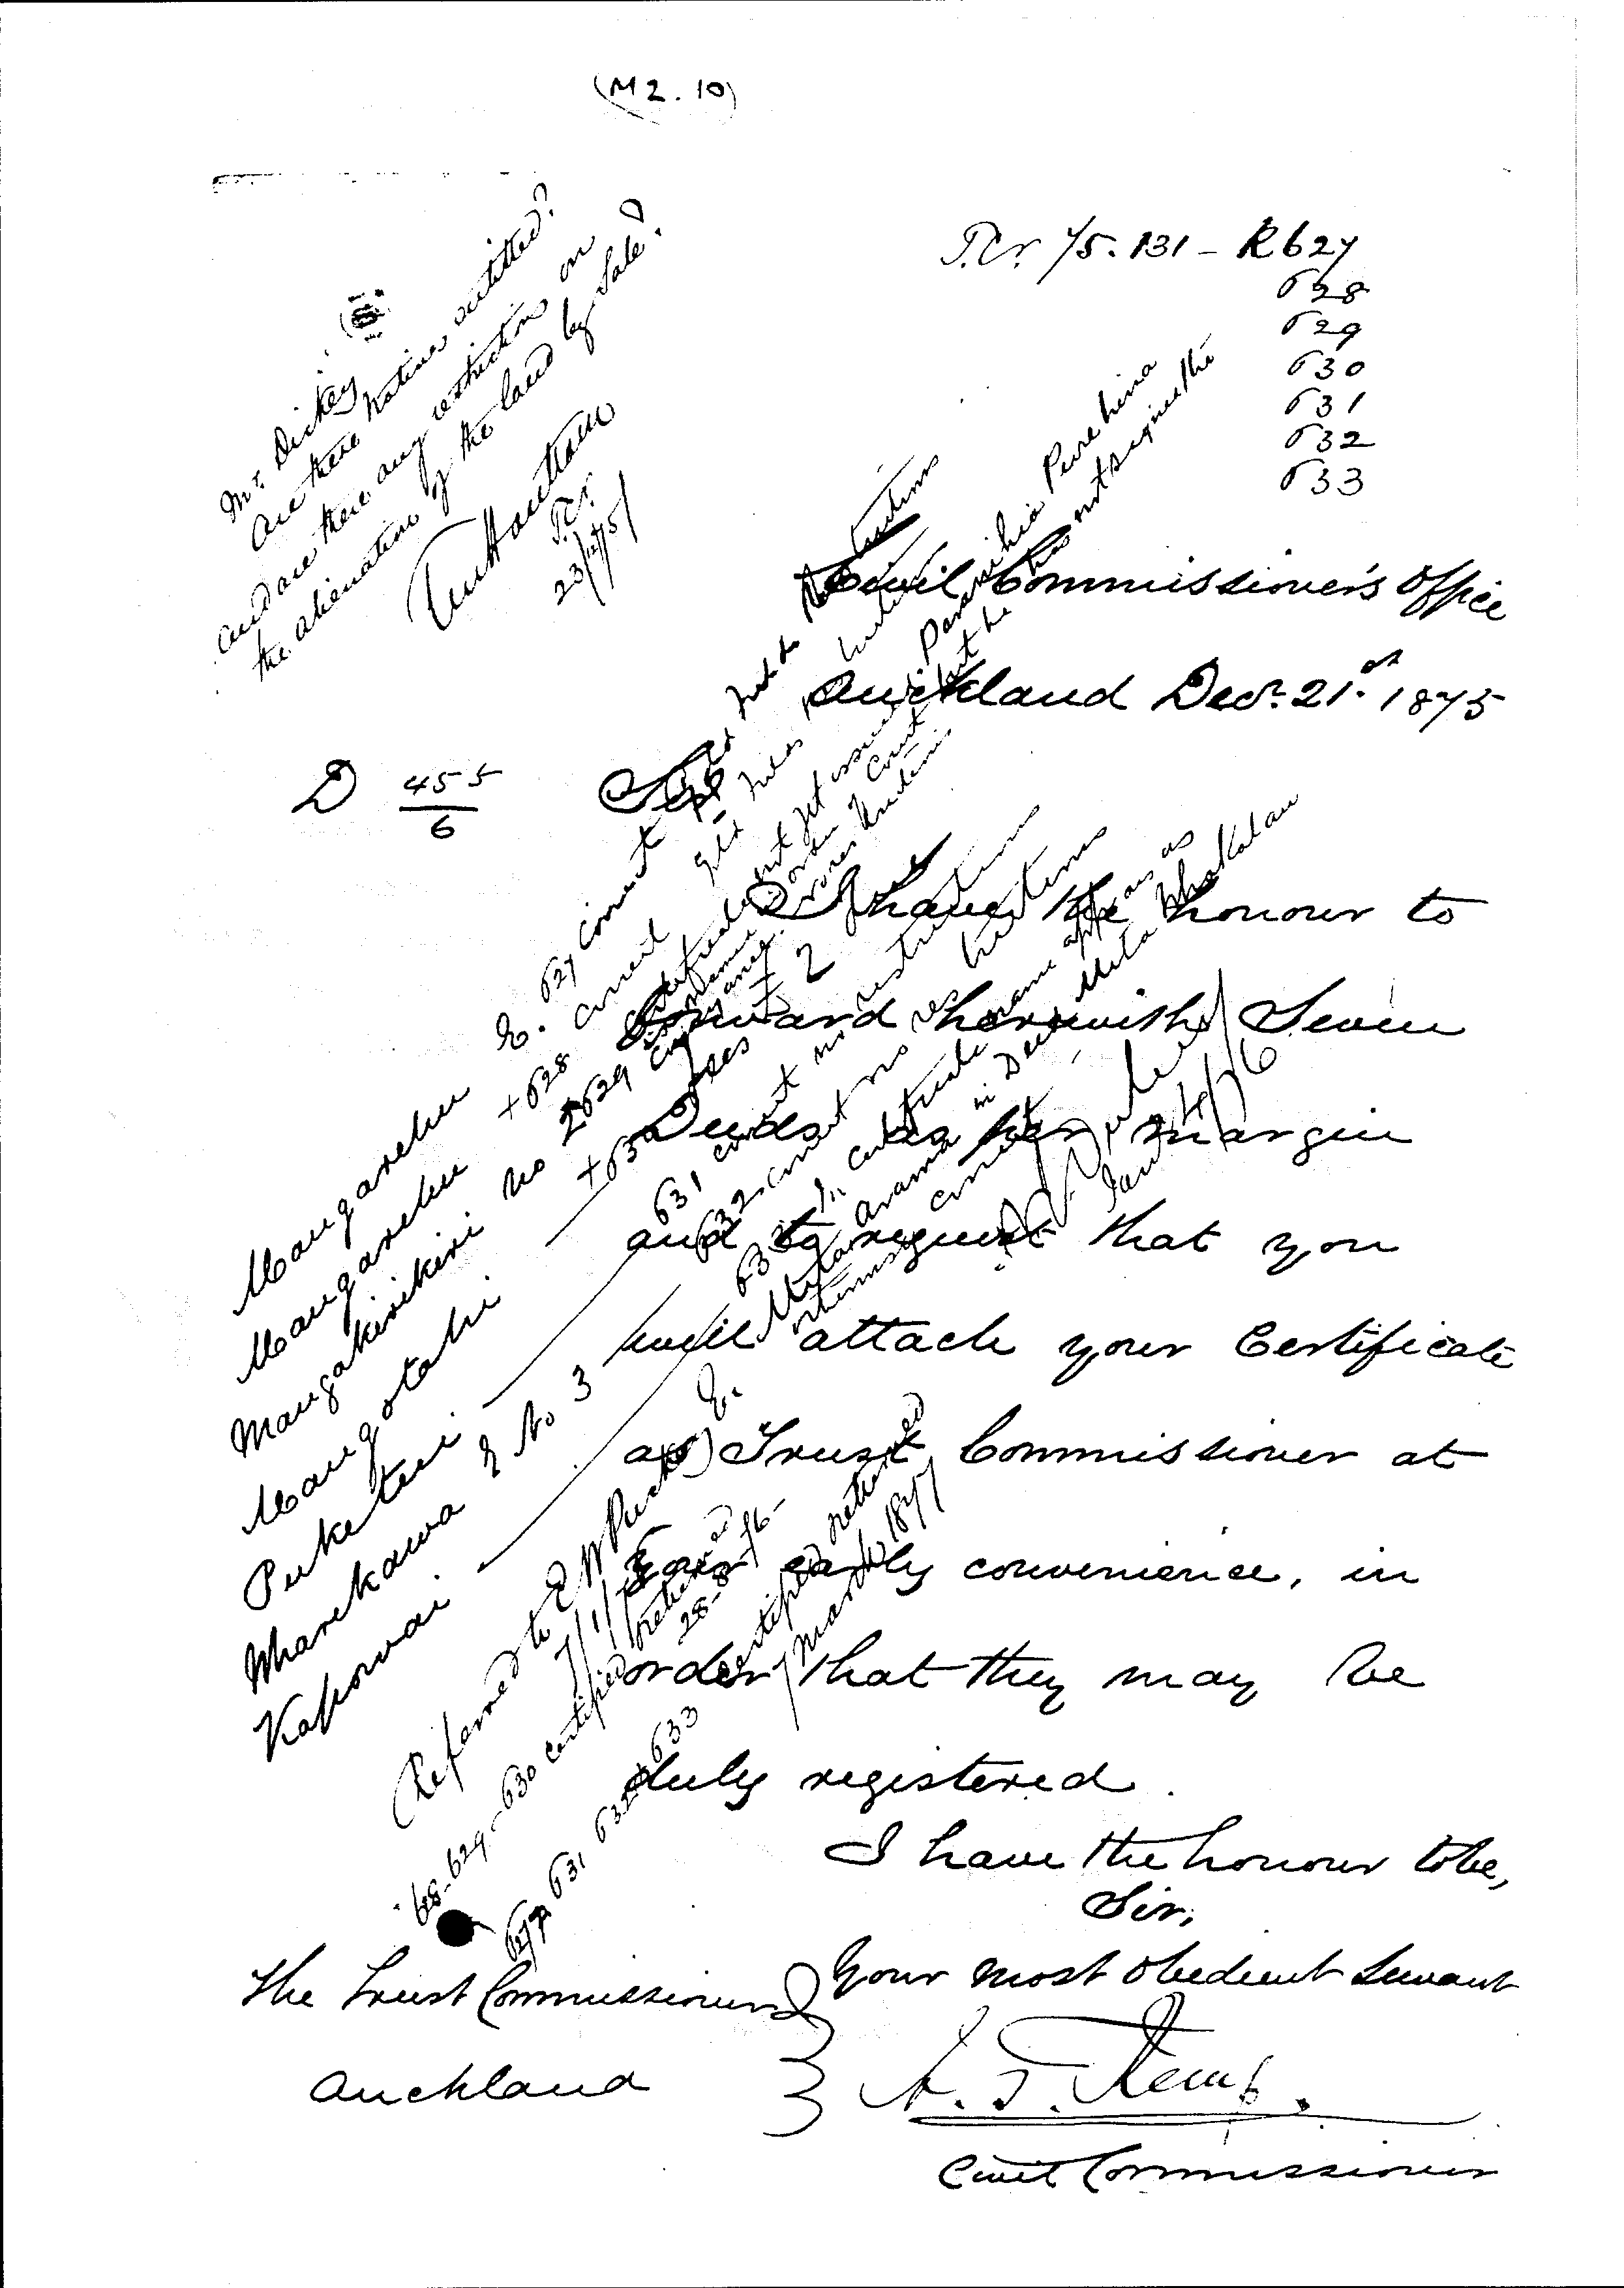 (M2.10)
T.Cr. 75.131 - R627
628
629
630
631
632
633
Mr. Dickey
Are these natives entitled?
and are there any restrictions on
the alienation of the land by Sale?
T.Cr.
23/12/75
Civil Commissioner's Office
Auckland Decr. 21.st 1875
D 455/6
Sir
I have the honour to
forward herewith Seven
Deeds as per margin
and to request that you
will attach your Certificate
as Trust Commissioner at
your early convenience, in
order that they may be
duly registered.
I have the honour to be,
Sir,
Your most obedient Servant
H. T. Kemp.
Civil Commissioner
The Trust Commissioner
Auckland
Mangarehu E. 627 correct
Mangarehu + 628 correct
Mangakirikiri No 2 629
Mangotahi + 630
Puketui 631 correct no restrictions
Wharekawa E No 3 632 correct no restrictions
Kapowai 633 In certificate name appears as
Mita Arama in Deed Mita Whakatau
otherwise correct
Jan 4/76
Referred to E W Puckey E.
7/1/76
628-629-630 certified & returned
28-8-76-
627 631 632 & 633 certified & returned
7 March 1877